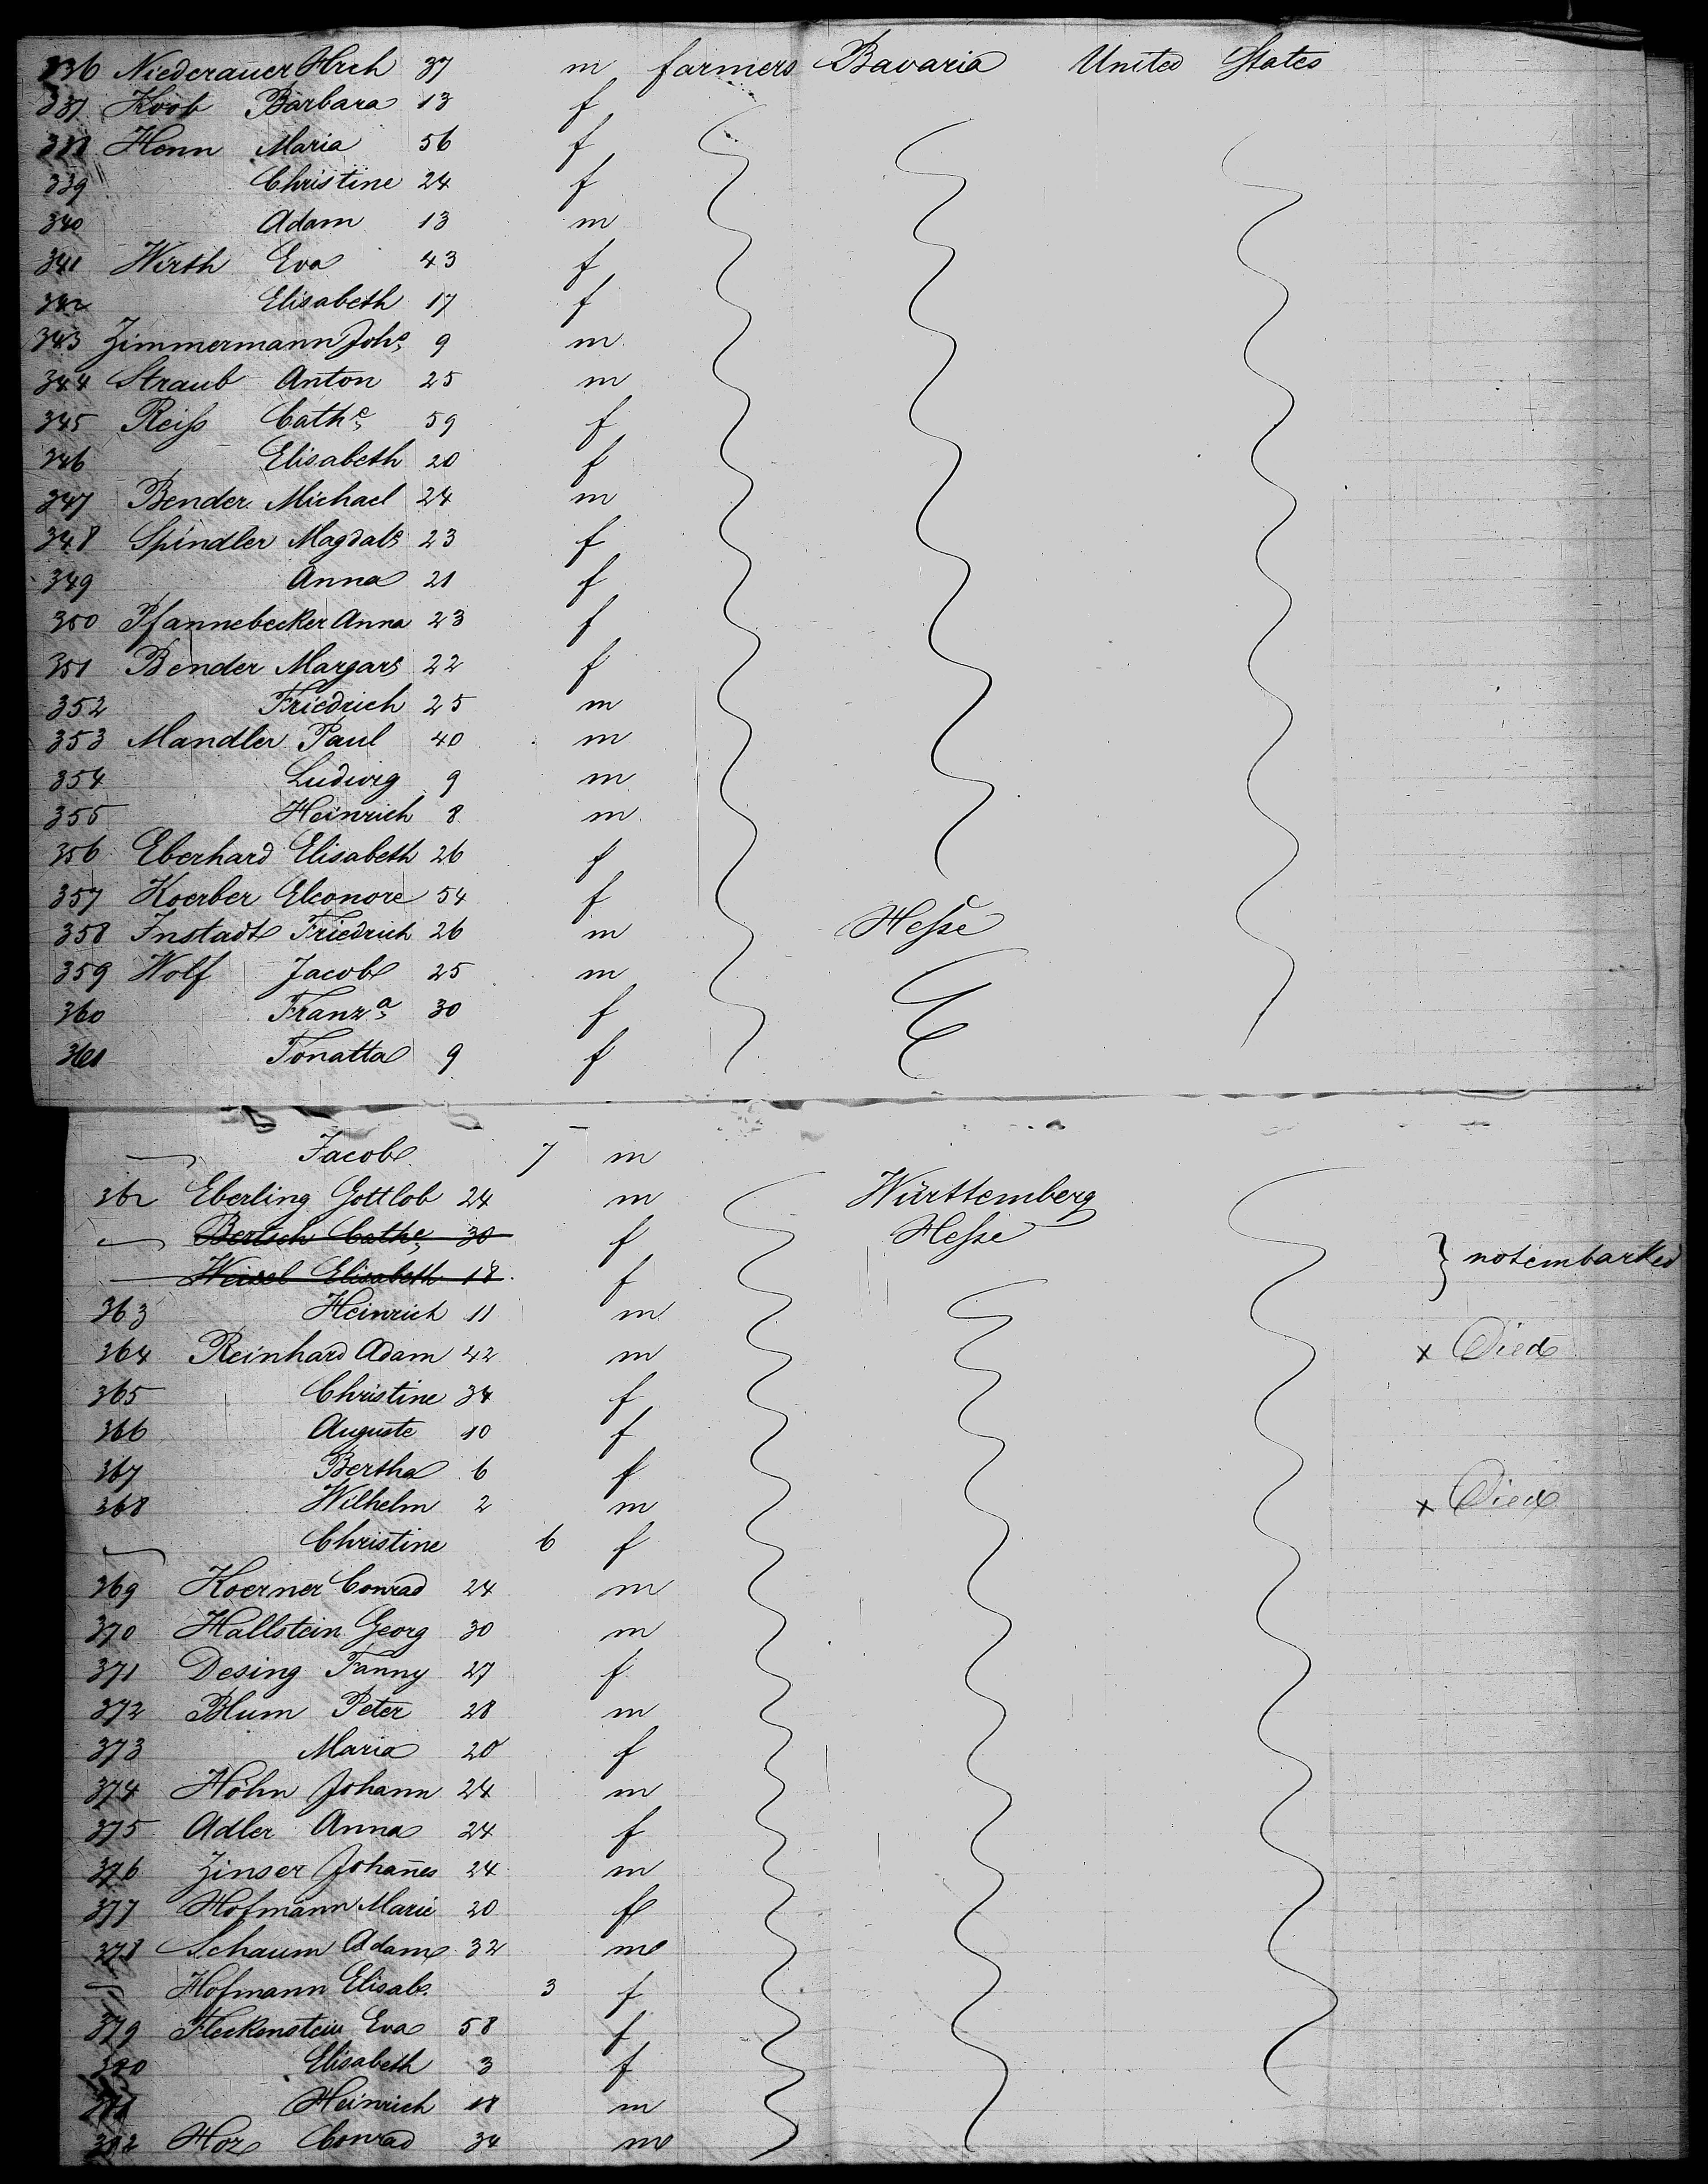 336 Niederauer Hrch 37 m farmers Bavaria United States
337 Koob Barbara 13 f
338 Henn Maria 56 f
339 Christine 24 f
340 Adam 13 m
341 Wirth Eva 43 f
342 Elisabeth 17 f
343 Zimmermann Johs 9 m
344 Straub Anton 25 m
345 Reiß Cathe 59 f
346 Elisabeth 20 f
347 Bender Michael 24 m
348 Spindler Magdale 23 f
349 Anna 21 f
350 Pfannebecker Anna 23 f
351 Bender Margar 22 f
352 Friedrich 25 m
353 Mandler Paul 40 m
354 Ludwig 9 m
355 Heinrich 8 m
356 Eberhard Elisabeth 26 f
357 Koerber Eleonore 54 f
358 Instadt Friedrich 26 m Heſse
359 Wolf Jacob 25 m
360 Franza 30 f
361 Tonatta 9 f
Jacob 7 m
362 Eberling Gottlob 24 m Württemberg
Bertsch Cathe 30 f Heſse
Weisel Elisabeth 18 f } not embarked
363 Heinrich 11 m
364 Reinhard Adam 42 m x Died
365 Christine 34 f
366 Auguste 10 f
367 Bertha 6 f
368 Wilhelm 2 m x Died
Christine 6 f
369 Koerner Conrad 24 m
370 Hallstein Georg 30 m
371 Desing Fanny 27 f
372 Blum Peter 28 m
373 Maria 20 f
374 Höhn Johann 24 m
375 Adler Anna 24 f
376 Zinser Johañes 24 m
377 Hofmann Marie 20 f
378 Schaum Adam 32 m
Hofmann Elisab. 3 f
379 Fleckenstein Eva 58 f
380 Elisabeth 3 f
381 Heinrich 18 m
382 Hoz Conrad 34 m